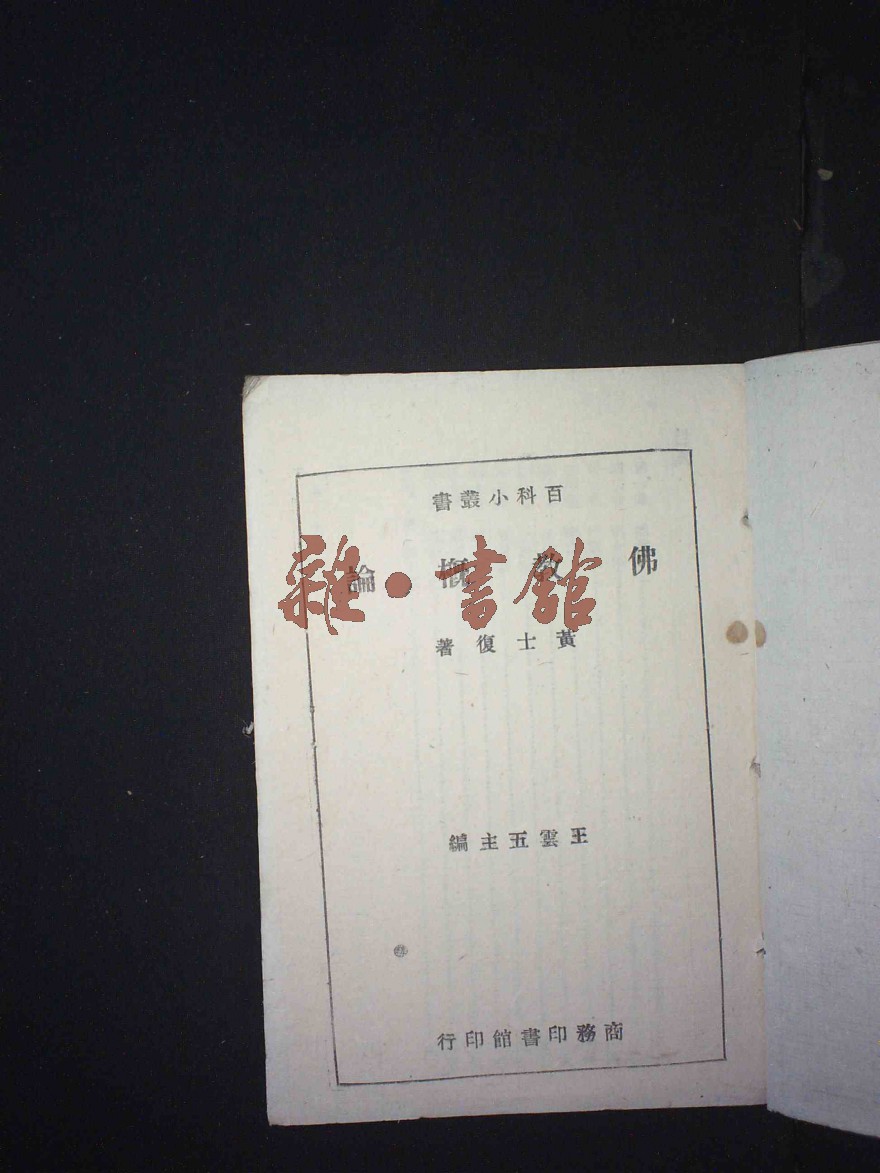 百科小叢書
佛教概論
雜·書館
黃士復著
王雲五主編
商務印書館印行